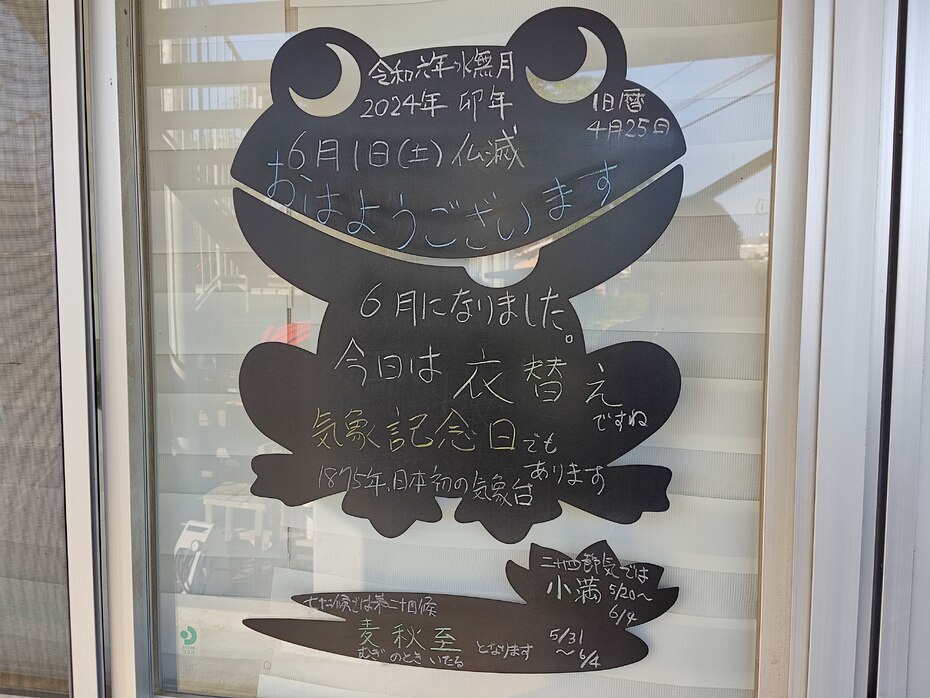 令和六年水無月
2024年 卯年
旧暦
4月25日
6月1日(土)仏滅
おはようございます
6月になりました。
今日は 衣替え
ですね
気象記念日でも
あります
1875年、日本初の気象台
二十四節気では
小満 5/20〜
6/4
七十二候では第二十四候
麦秋至
むぎのときいたる
となります
5/31
〜6/4